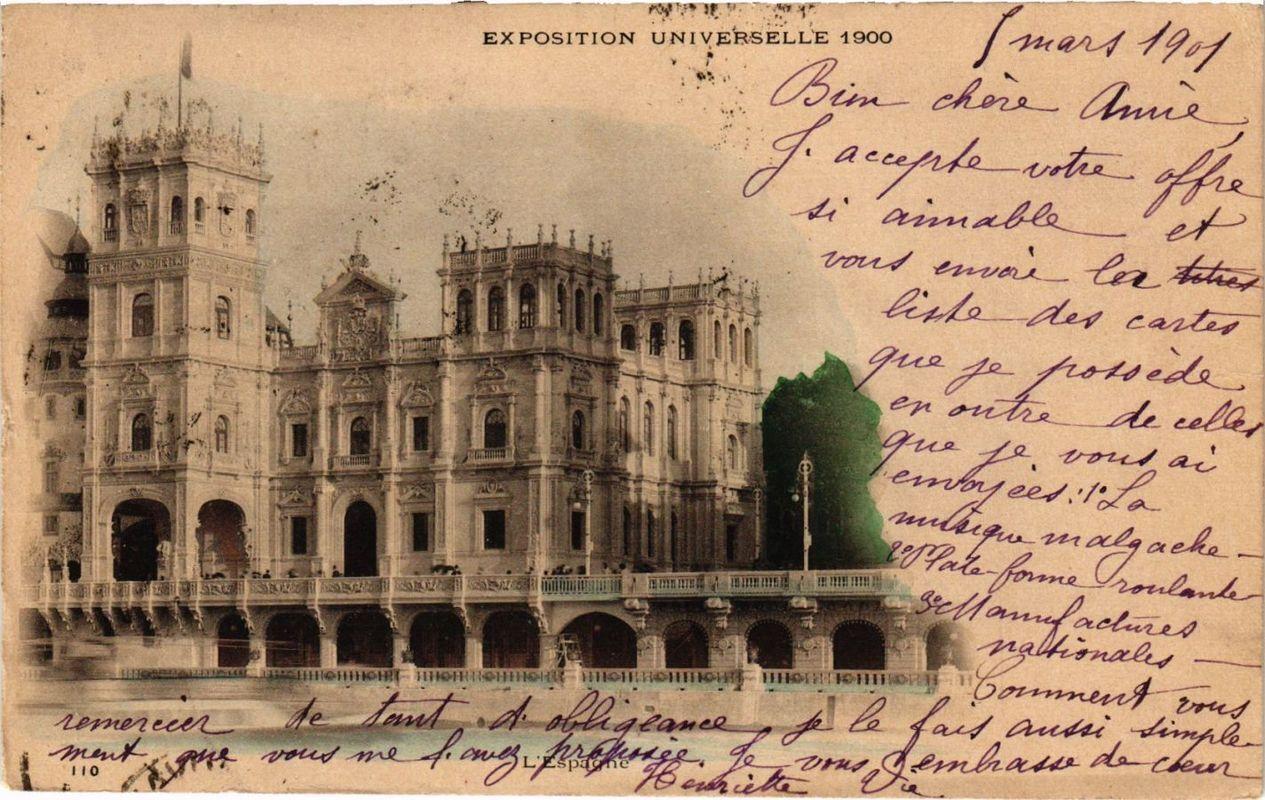 EXPOSITION UNIVERSELLE 1900
5 mars 1901
Bien chère Amie,
J'accepte votre offre
si aimable et
vous envoie la titres
liste des cartes
que je possède
en outre de celles
que je vous ai
envoyées: 1º La
musique malgache —
2º Plate-forme roulante
3º Manufactures
nationales —
Comment vous
remercier de tant d'obligeance je le fais aussi simple-
ment que vous me l'avez proposée. Je vous embrasse de cœur
110
L'Espagne
Henriette Vié